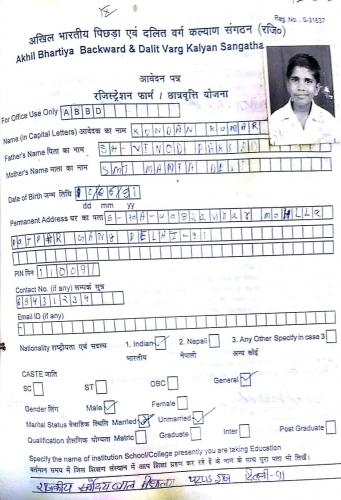 Reg. No. S-31637
अखिल भारतीय पिछड़ा एवं दलित वर्ग कल्याण संगठन (रजि०)
Akhil Bhartiya Backward & Dalit Varg Kalyan Sangatha
आवेदन पत्र
रजिस्ट्रेशन फार्म / छात्रवृत्ति योजना
For Office Use Only A B B D
Name (in Capital Letters) आवेदक का नाम KUNDAN KUMAR
Father's Name पिता का नाम SH VINOD
Mother's Name माता का नाम SMT MAMTA DEVI
Date of Birth जन्म तिथि
dd mm yy
Permanent Address घर का पता
GANJ DELHI-91
PIN पिन 110091
Contact No. (if any) सम्पर्क सूत्र
Email ID (if any)
Nationality राष्ट्रीयता एवं सदस्य 1. Indian 2. Nepali 3. Any Other Specify in case 3
भारतीय नेपाली अन्य कोई
CASTE जाति
SC ST OBC General
Gender लिंग Male Female
Marital Status वैवाहिक स्थिति Married Unmarried
Qualification शैक्षणिक योग्यता Matric Graduate Inter Post Graduate
Specify the name of institution School/College presently you are taking Education
वर्तमान समय में जिस शिक्षण संस्थान में आप शिक्षा ग्रहण कर रहे हैं के नाम के साथ पूरा पता भी लिखें।
राजकीय सर्वोदय बाल विद्यालय दिल्ली-91